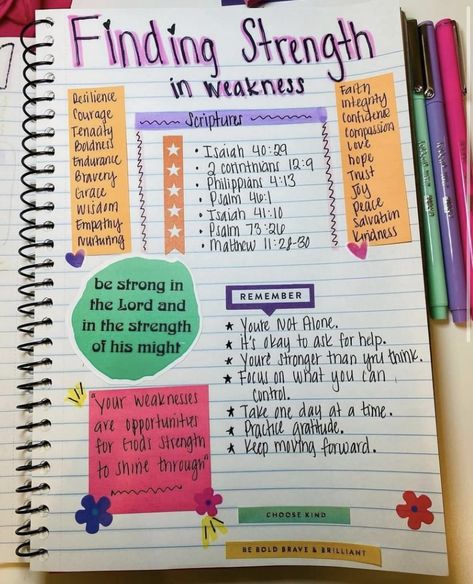 Finding Strength
in weakness
Resilience
Courage
Tenacity
Boldness
Endurance
Bravery
Grace
Wisdom
Empathy
Nurturing
Scriptures
• Isaiah 40:29
• 2 corinthians 12:9
• Philippians 4:13
• Psalm 46:1
• Isaiah 41:10
• Psalm 73:26
• Matthew 11:28-30
Faith
integrity
Confidence
compassion
Love
hope
Trust
Joy
peace
Salvation
Kindness
be strong in
the Lord and
in the strength
of his might
REMEMBER
★ You're Not Alone.
★ It's okay to ask for help.
★ You're stronger than you think.
★ Focus on what you can
control.
★ Take one day at a time.
★ Practice gratitude.
★ Keep moving forward.
"Your weaknesses
are opportunities
for Gods strength
to shine through"
CHOOSE KIND
BE BOLD BRAVE & BRILLIANT